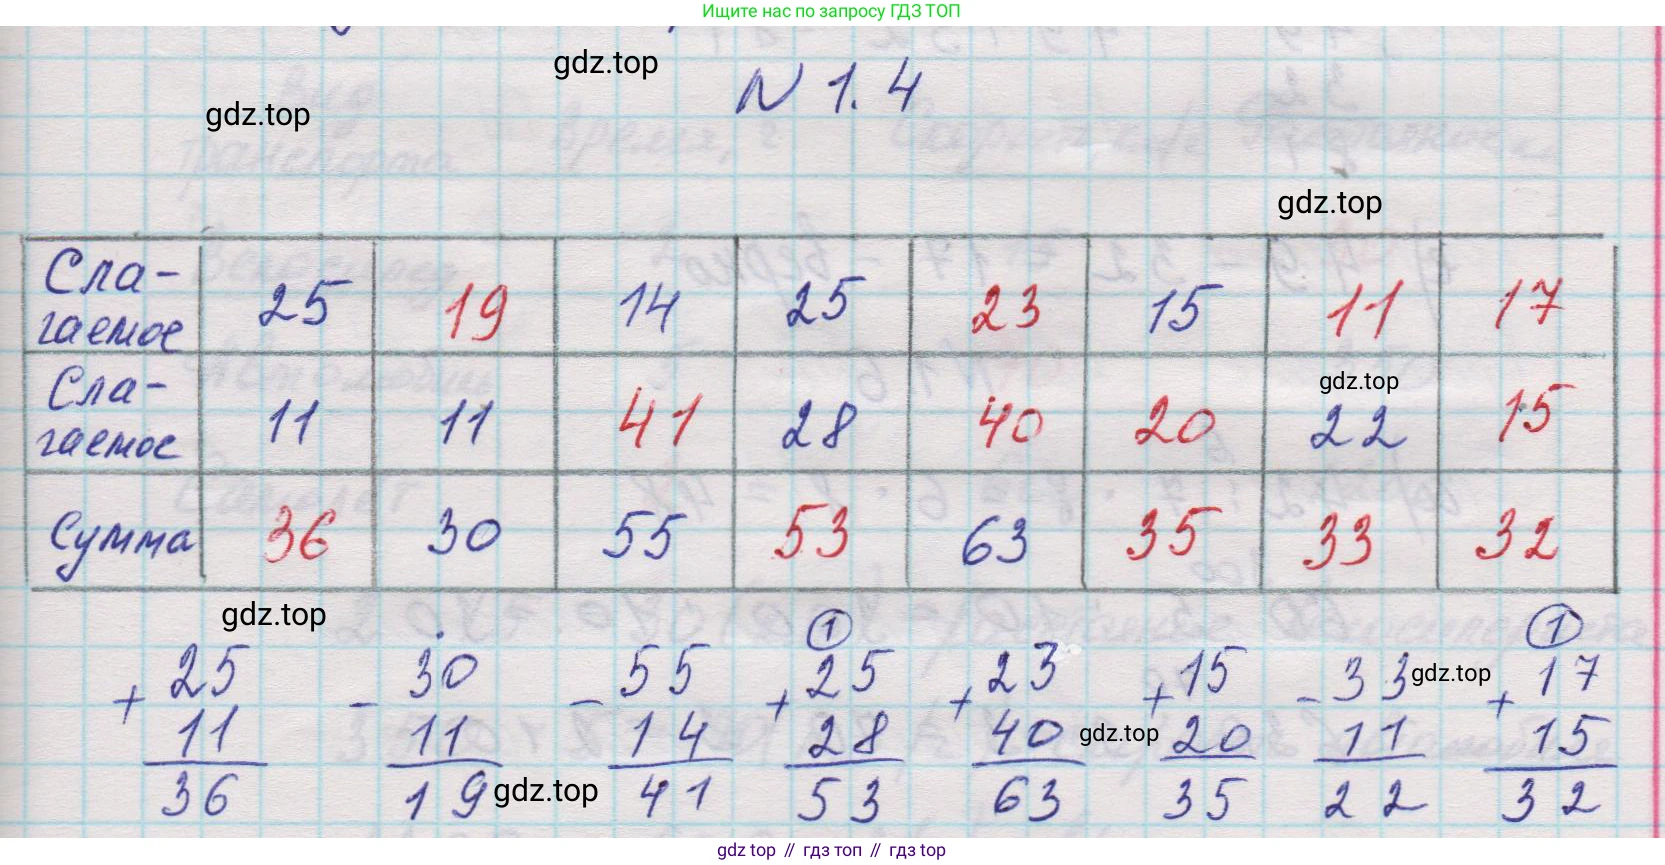 Ищите нас по запросу ГДЗ ТОП
gdz.top
N 1. 4
gdz.top
gdz.top
Сла-
гаемое 25 19 14 25 23 15 11 17
gdz.top
Сла-
гаемое 11 11 41 28 40 20 22 15
Сумма 36 30 55 53 63 35 33 32
gdz.top
1 1
+ 25 - 30 - 55 + 25 + 23 + 15 - 33 + 17
gdz.top
11 11 14 28 40 20 11 15
gdz.top
36 19 41 53 63 35 22 32
gdz.top
gdz top // гдз топ // gdz top